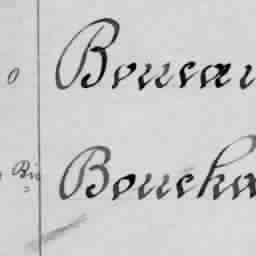 o Boucau
Bin Boucha